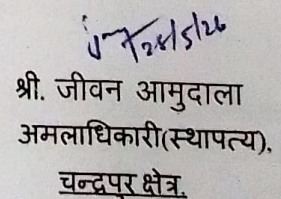 28/5/26
श्री. जीवन आमुदाला
अमलाधिकारी(स्थापत्य).
चन्द्रपुर क्षेत्र.